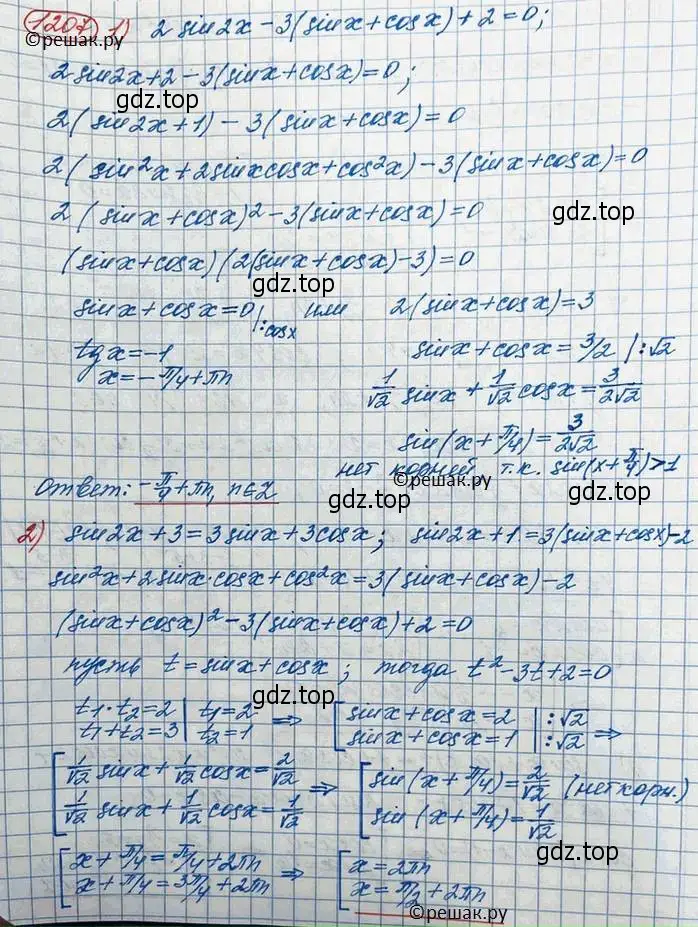 1207 1) 2 sin2x − 3(sinx + cosx) + 2 = 0;
©решак.ру
2 sin2x + 2 − 3(sinx + cosx) = 0;
gdz.top
2(sin2x + 1) − 3(sinx + cosx) = 0
2(sin²x + 2sinxcosx + cos²x) − 3(sinx + cosx) = 0
2(sinx + cosx)² − 3(sinx + cosx) = 0
gdz.top
(sinx + cosx)(2(sinx + cosx) − 3) = 0
©решак.ру
sinx + cosx = 0 |:cosx или 2(sinx + cosx) = 3
tgx = −1 sinx + cosx = 3/2 | :√2
x = −π/4 + πn 1/√2 sinx + 1/√2 cosx = 3/2√2
gdz.top
sin(x + π/4) = 3/2√2
нет корней т.к. sin(x + π/4) > 1
©решак.ру
Ответ: −π/4 + πn, n∈Z
2) sin2x + 3 = 3sinx + 3cosx; sin2x + 1 = 3(sinx + cosx) − 2
©решак.ру
sin²x + 2sinx·cosx + cos²x = 3(sinx + cosx) − 2
(sinx + cosx)² − 3(sinx + cosx) + 2 = 0
пусть t = sinx + cosx; тогда t² − 3t + 2 = 0
gdz.top
t₁·t₂ = 2 | t₁ = 2 ⇒ [ sinx + cosx = 2 | :√2
t₁ + t₂ = 3 | t₂ = 1 sinx + cosx = 1 | :√2 ⇒
©решак.ру
[ 1/√2 sinx + 1/√2 cosx = 2/√2 ⇒ [ sin(x + π/4) = 2/√2 (нет корн.)
1/√2 sinx + 1/√2 cosx = 1/√2 sin(x + π/4) = 1/√2
gdz.top
[ x + π/4 = π/4 + 2πn ⇒ [ x = 2πn
x + π/4 = 3π/4 + 2πn x = π/2 + 2πn
©решак.ру